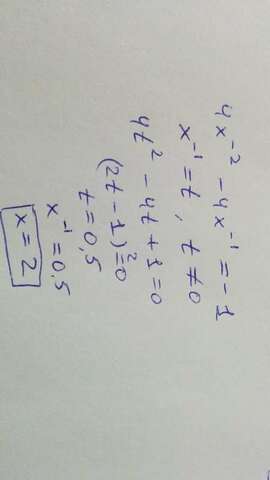 4x⁻² - 4x⁻¹ = -1
x⁻¹ = t, t ≠ 0
4t² - 4t + 1 = 0
(2t - 1)² = 0
t = 0,5
x⁻¹ = 0,5
x = 2